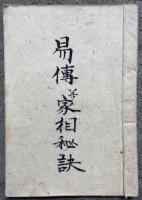 易傳並家相秘訣